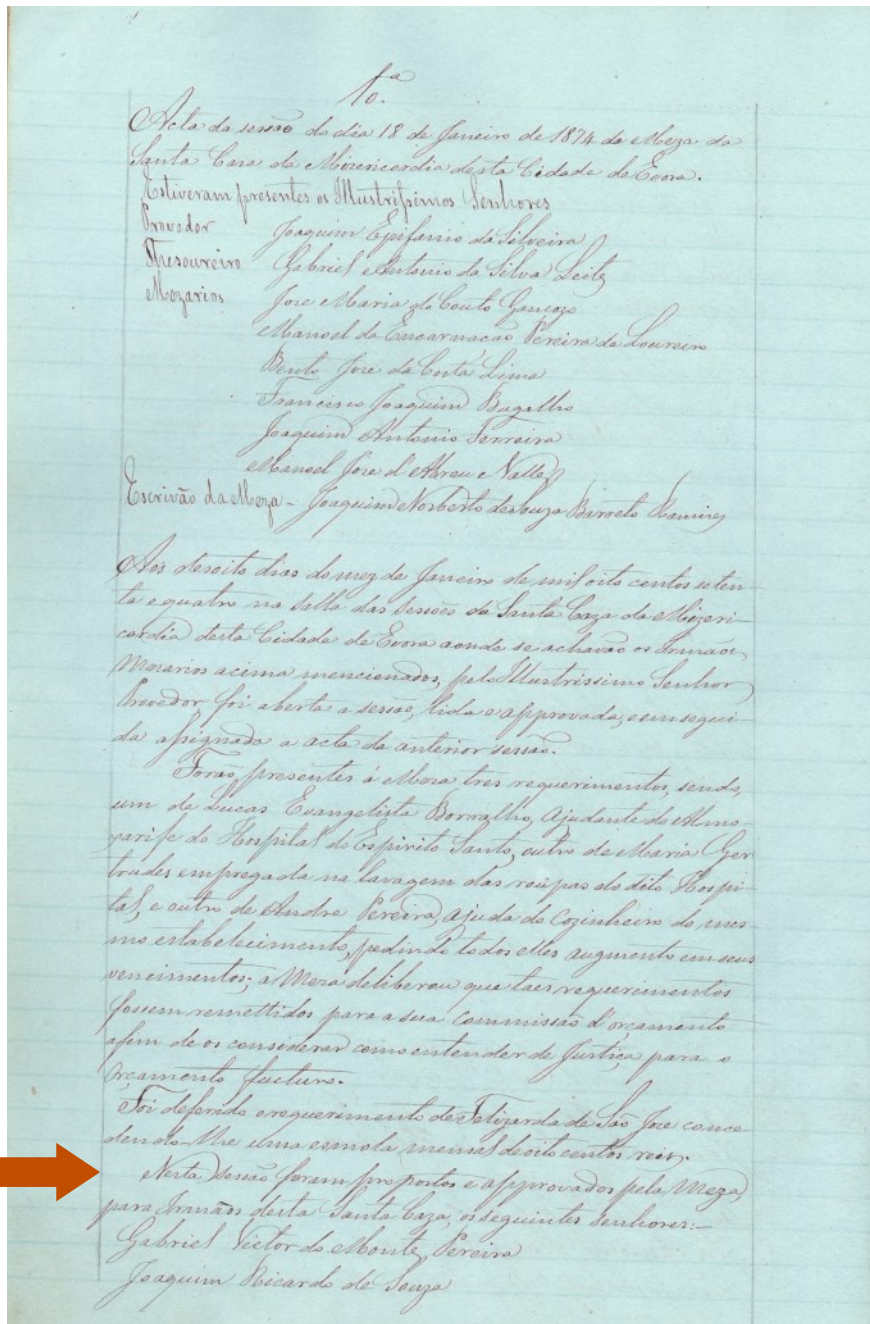 1ª
Acta da sessão do dia 18 de Janeiro de 1874 da Meza da
Santa Casa da Misericordia desta Cidade de Evora.
Estiveram presentes os Illustrissimos Senhores
Provedor Joaquim Epifanio da Silveira
Thesoureiro Gabriel Antonio da Silva Leite
Mezarios Jose Maria do Couto
Manoel da Encarnação Pereira de Loureiro
Bento Jose da Costa Lima
Francisco Joaquim Bugalho
Joaquim Antonio Ferreira
Manoel Jose d'Abreu e Valle
Escrivão da Meza - Joaquim Norberto de Souza Barreto Ramires
Aos desoito dias do mez de Janeiro de mil oito centos seten-
ta e quatro na Salla das Sessões da Santa Caza da Mizeri-
cordia desta Cidade de Evora aonde se achavão os Irmãos
Mezarios acima mencionados, pelo Illustrissimo Senhor
Provedor foi aberta a sessão, lida e approvada, e em segui-
da assignada a acta da anterior sessão.
Forão presentes á Meza tres requerimentos, sendo,
um de Lucas Evangelista Borralho, Ajudante do Almo-
xarife do Hospital do Espirito Santo, outro de Maria Ger
trudes empregada na lavagem das roupas do dito Hospi-
tal, e outro de Andre Pereira, ajuda do Cozinheiro do mes-
mo estabelecimento, pedindo todos elles augmento em seus
vencimentos; a Meza deliberou que taes requerimentos
fossem remettidos para a sua Commissão d'orçamento
afim de os considerar como entender de Justiça para o
Orçamento futuro.
Foi deferido o requerimento de Felizarda de São Jose conce
dendo-lhe uma esmola mensal de oito centos reis.
Nesta sessão foram propostos e approvados pela Meza,
para Irmãos desta Santa Caza, os seguintes senhores:-
Gabriel Victor do Monte Pereira
Joaquim Ricardo de Souza